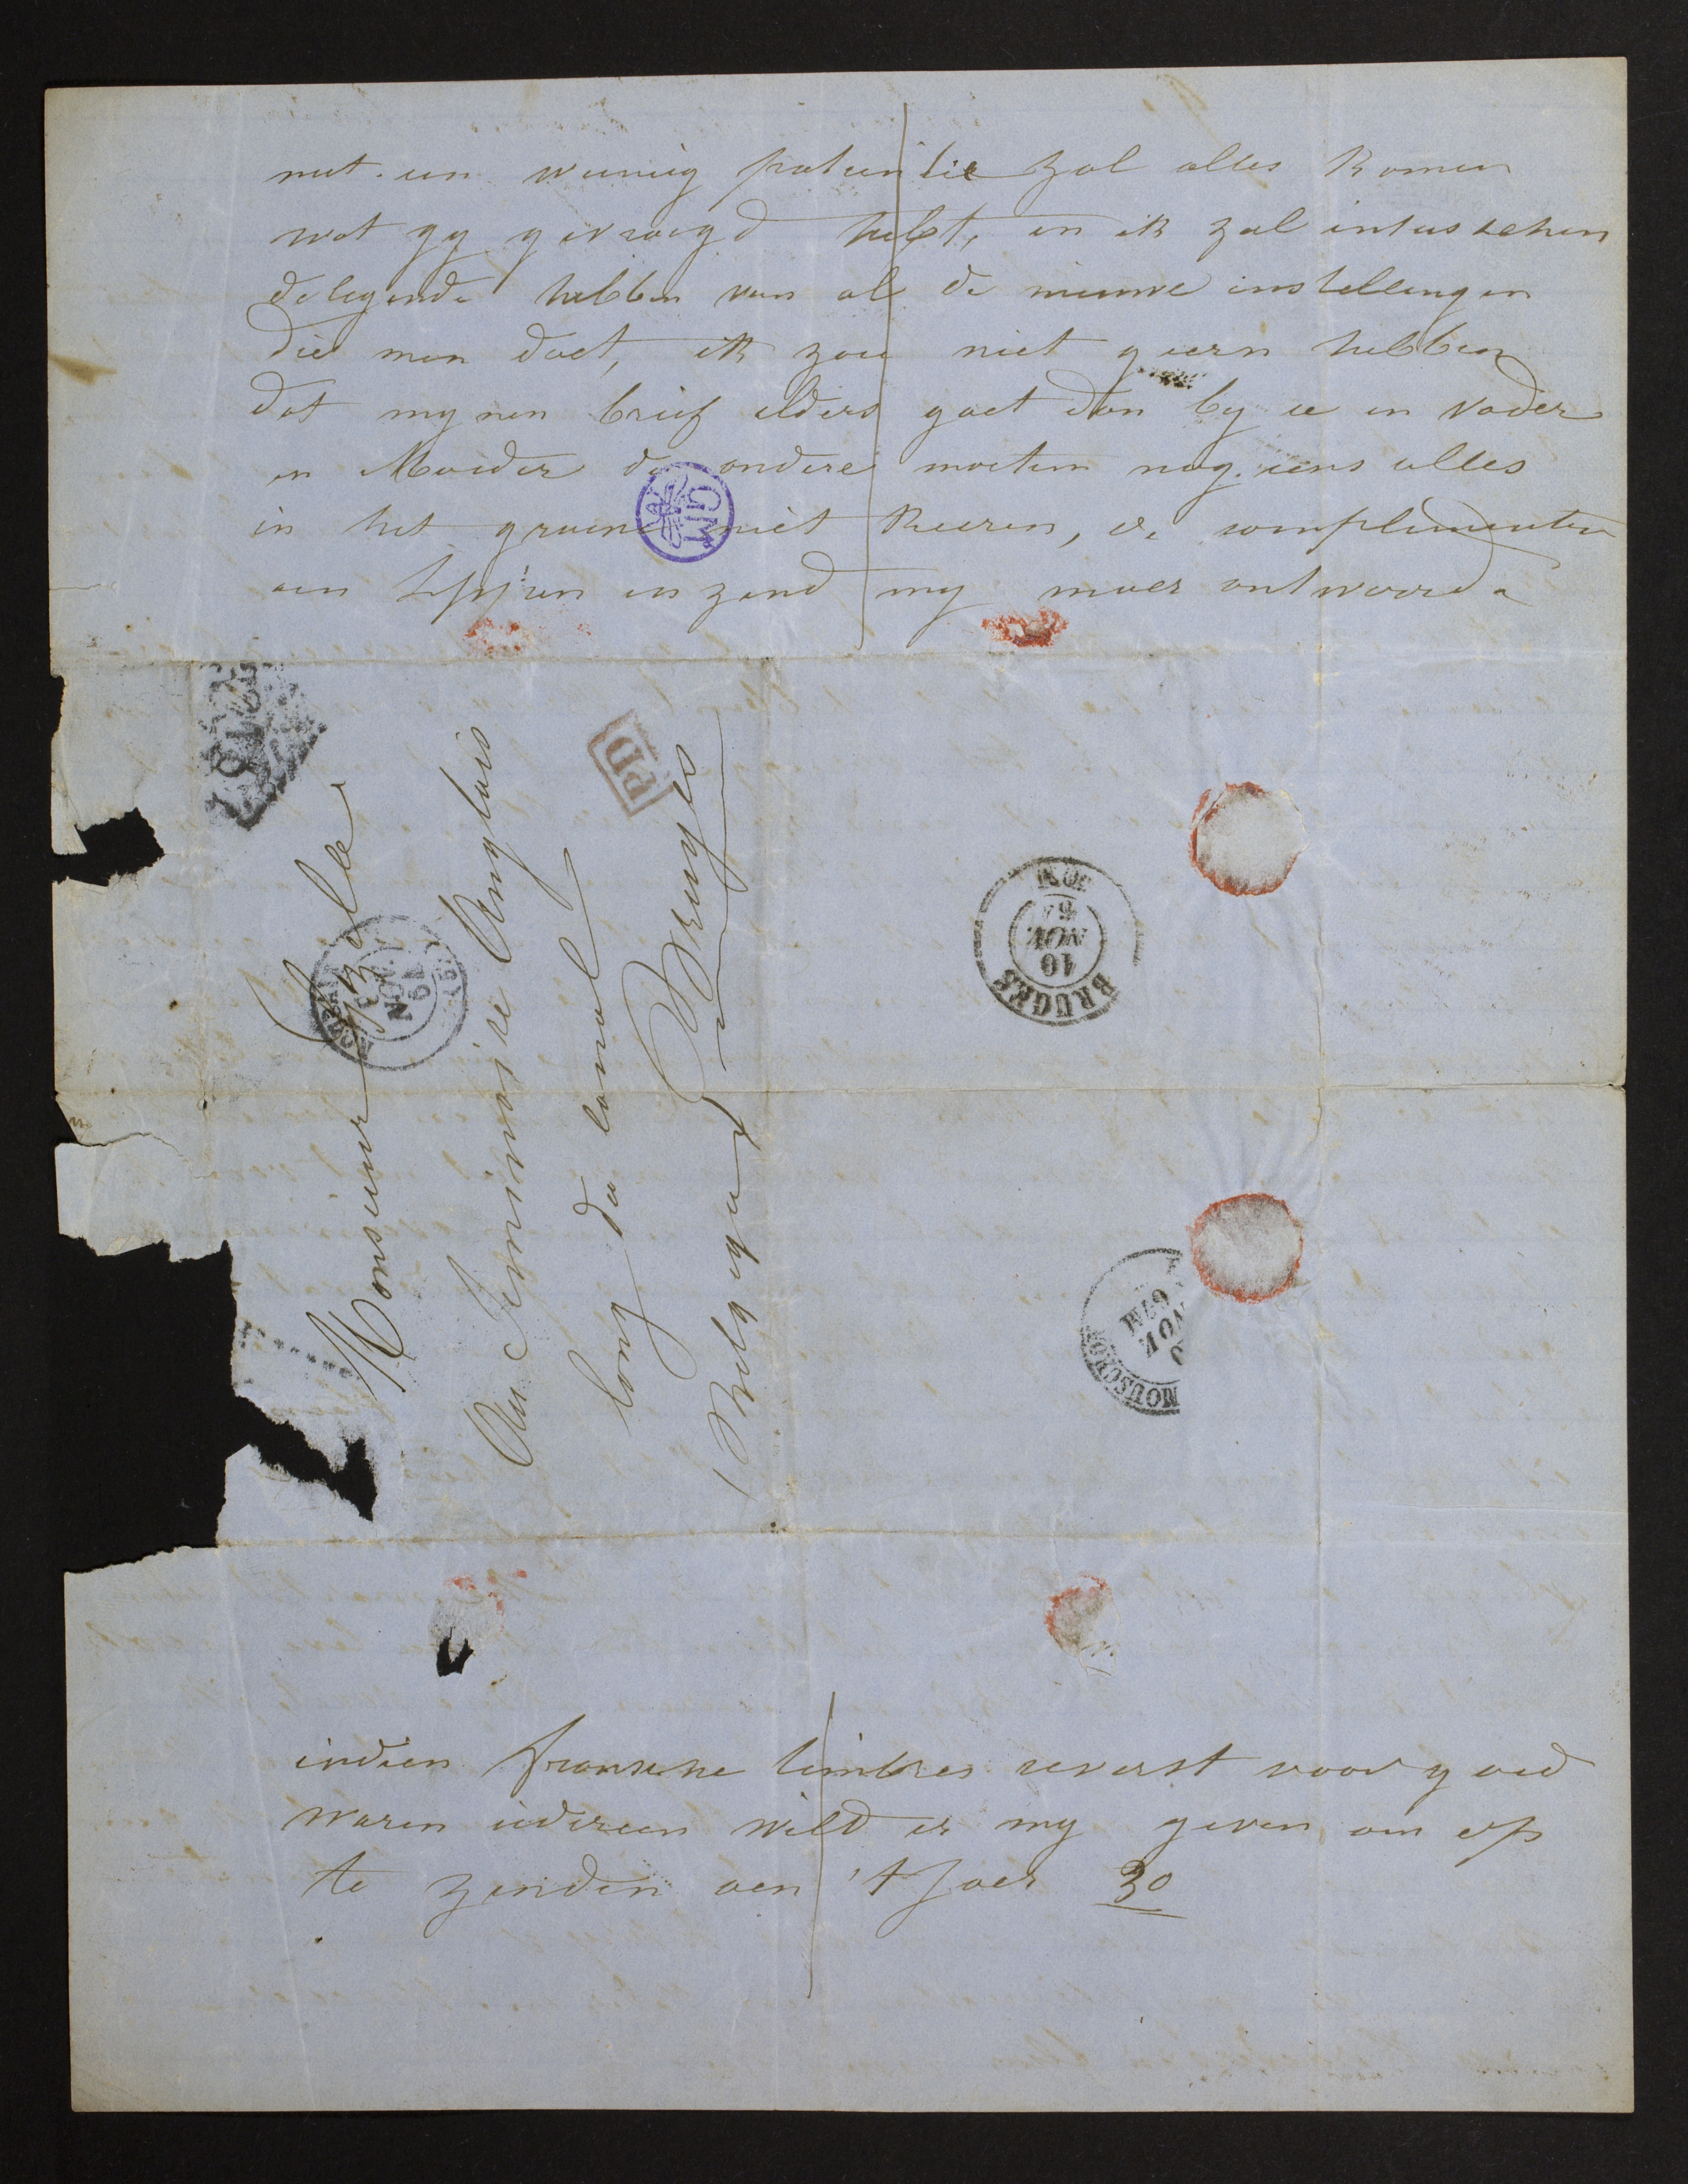 met een weinig patientie zal alles komen
wat gy gevraegd hebt, en ik zal intusschen
de legende hebben van al de nieuwe instellingen
die men doet, ik zou niet geern hebben
dat mynen brief elders gaet dan by u en vader
en Moeder de andere moeten nog eens alles
in het groene niet keeren, de complimenten
aen en zend my maer antwoorde
GM
PD
Monsieur Gezelle
Au Seminaire Anglais
long du Canal
Belgique Bruges
BRUGES
10
NOV
MOUSCRON
indien fransche timbres reverst voor goed
waren iedereen wild er my geven om op
te zenden aen 't Jaer 30